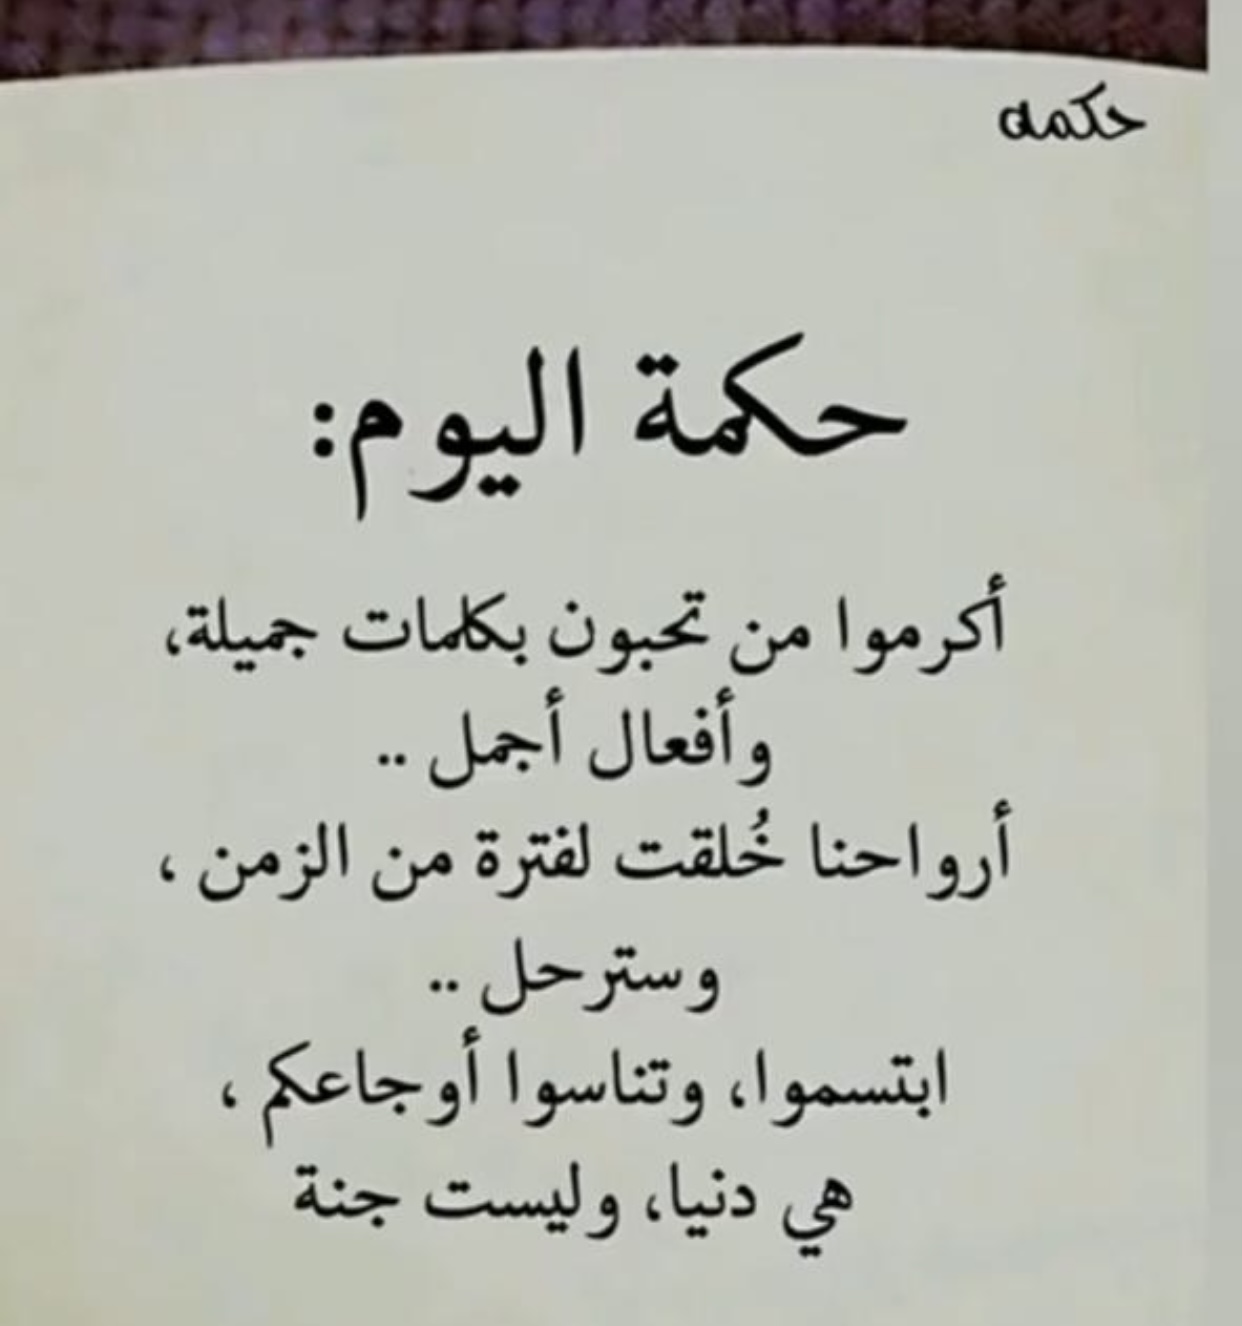 حكمه
حكمة اليوم:
أكرموا من تحبون بكلمات جميلة،
وأفعال أجمل ..
أرواحنا خُلقت لفترة من الزمن ،
وسترحل ..
ابتسموا، وتناسوا أوجاعكم ،
هي دنيا، وليست جنة